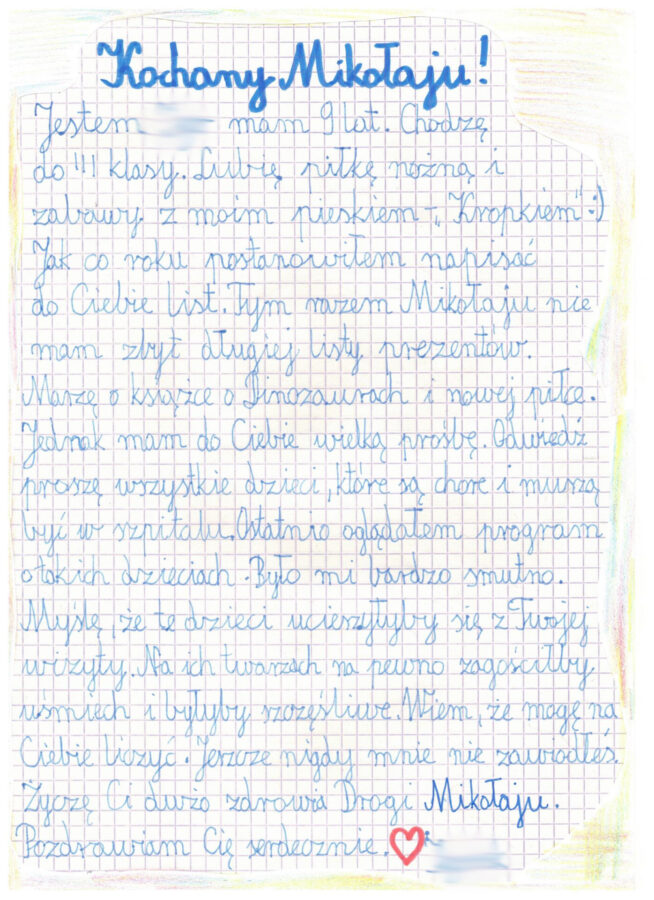 Kochany Mikołaju!
Jestem mam 9 lat. Chodzę
do III klasy. Lubię piłkę nożną i
zabawy z moim pieskiem - „Kropkiem" :)
Jak co roku postanowiłem napisać
do Ciebie list. Tym razem Mikołaju nie
mam zbyt długiej listy prezentów.
Marzę o książce o Dinozaurach i nowej piłce.
Jednak mam do Ciebie wielką prośbę. Odwiedź
proszę wszystkie dzieci, które są chore i muszą
być w szpitalu. Ostatnio oglądałem program
o takich dzieciach. Było mi bardzo smutno.
Myślę, że te dzieci ucieszyłyby się z Twojej
wizyty. Na ich twarzach na pewno zagościłby
uśmiech i byłyby szczęśliwe. Wiem, że mogę na
Ciebie liczyć. Jeszcze nigdy mnie nie zawiodłeś.
Życzę Ci dużo zdrowia Drogi Mikołaju.
Pozdrawiam Cię serdecznie.